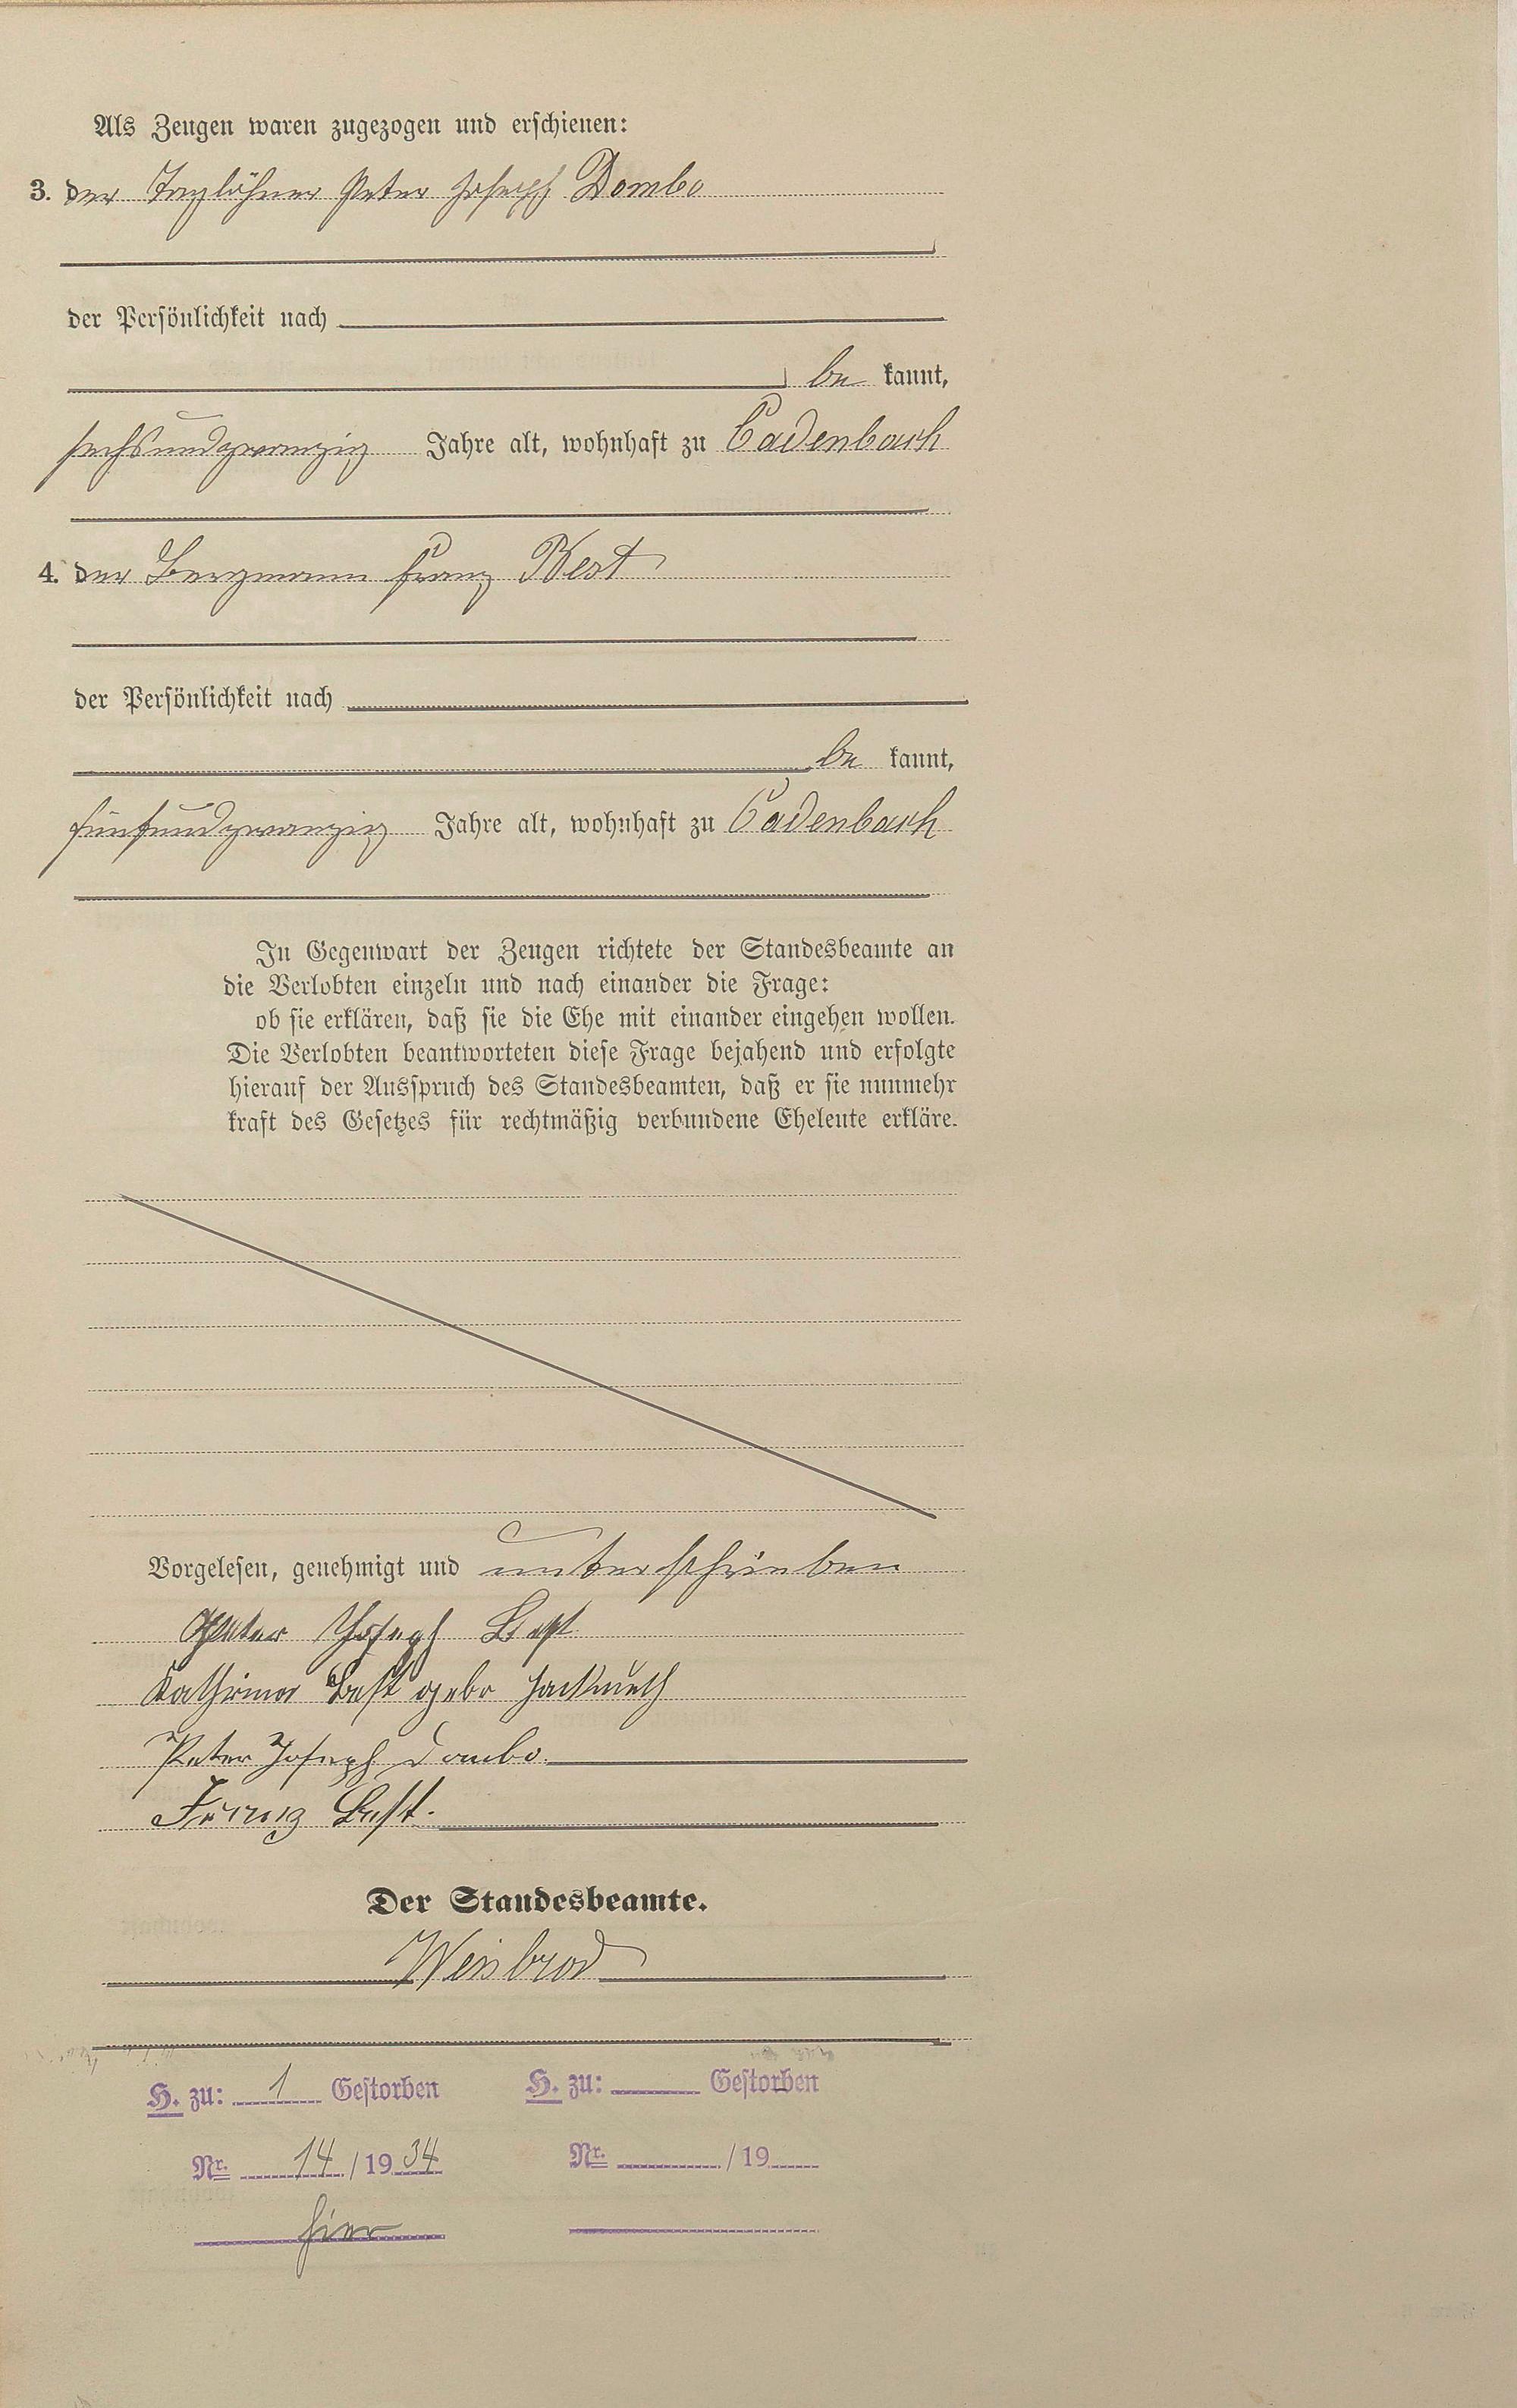 Als Zeugen waren zugezogen und erschienen:
3. der Taglöhner Peter Joseph Dombo
der Persönlichkeit nach
be kannt,
sechsundzwanzig Jahre alt, wohnhaft zu Cadenbach
4. der Bergmann Franz Best
der Persönlichkeit nach
be kannt,
fünfundzwanzig Jahre alt, wohnhaft zu Cadenbach
In Gegenwart der Zeugen richtete der Standesbeamte an
die Verlobten einzeln und nach einander die Frage:
ob sie erklären, daß sie die Ehe mit einander eingehen wollen.
Die Verlobten beantworteten diese Frage bejahend und erfolgte
hierauf der Ausspruch des Standesbeamten, daß er sie nunmehr
kraft des Gesetzes für rechtmäßig verbundene Eheleute erkläre.
Vorgelesen, genehmigt und unterschrieben
Peter Joseph Best
Best gebr
Peter Joseph Dombo.
Franz Best.
Der Standesbeamte.
Weisbrod
H. zu: 1 Gestorben H. zu: Gestorben
Nr. 14 / 1934 Nr. / 19
hier